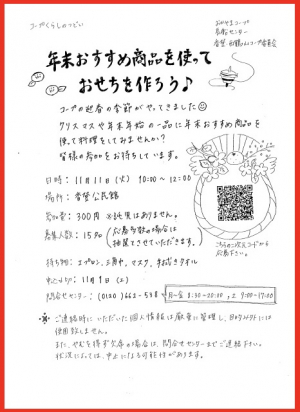 コープくらしのつどい
おかやまコープ
年末おすすめ商品を使って
おせちを作ろう♪
コープの迎春の季節がやってきました
クリスマスや年末年始の一品に年末おすすめ商品を
使って料理をしてみませんか?
皆様の参加をお待ちしています。
日時：11月11日(火) 10:00～12:00
場所：公民館
参加費：300円 ※託児はありません。
募集人数：15名 (応募多数の場合は
抽選とさせていただきます。)
こちらの二次元コードから
応募下さい。
持ち物：エプロン、三角巾、マスク、手ふきタオル
申込〆切：11月1日(土)
問合せセンター：(0120)
月～金 8:30-20:00、土 9:00-17:00
※ご連絡時にいただいた個人情報は厳重に管理し、目的以外には
使用致しません。
また、やむを得ず欠席の場合は、問合せセンターまでご連絡下さい。
状況によっては、中止になる可能性があります。